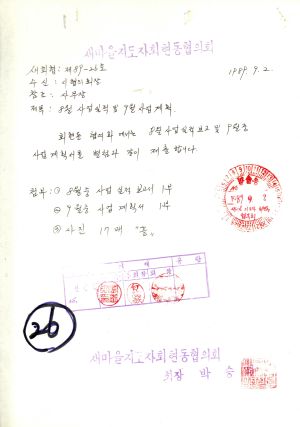 새마을지도자회현동협의회
새회협: 제89-26호 1989. 9. 2.
수신: 시협의회장
참조: 사무장
제목: 8월 사업실적 및 9월 사업계획.
회현동 협의회에서는 8월 사업실적 보고 및 9월중
사업계획서를 별첨과 같이 제출합니다.
첨부: ① 8월중 사업실적 보고서 1부
② 9월중 사업계획서 1부
③ 사진 17매 "끝"
1989. 9. 2
26
새마을지도자회현동협의회
회장 박 승